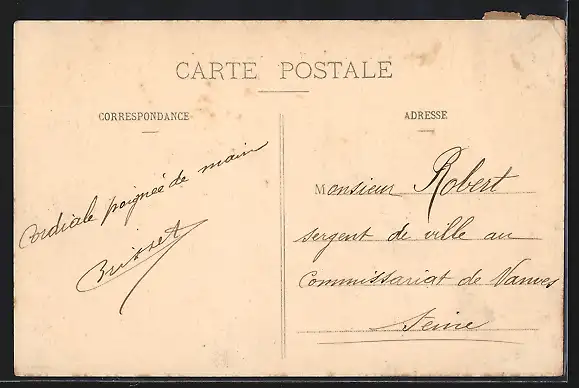 CARTE POSTALE
CORRESPONDANCE
Cordiale poignée de main
Brisset
ADRESSE
Monsieur Robert
sergent de ville au
Commissariat de Vanves
Seine